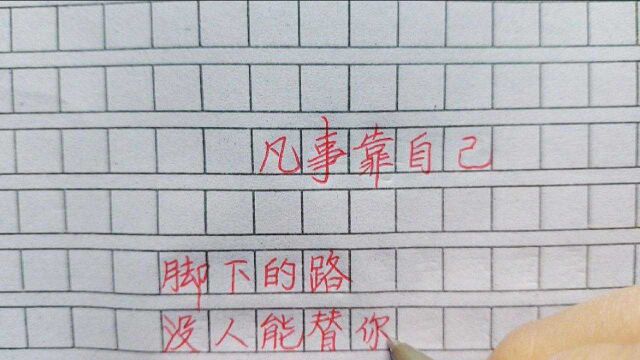 凡事靠自己
脚下的路
没人能替你